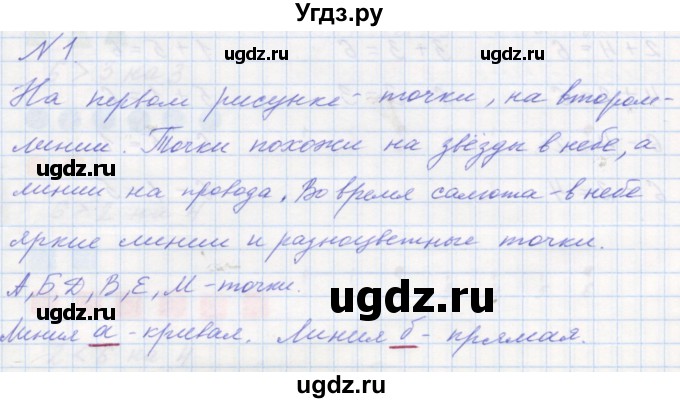 Угдз.ру
№1.
На первом рисунке - точки, на втором -
линии. Точки похожи на звёзды в небе, а
линии на провода. Во время салюта - в небе
яркие линии и разноцветные точки.
А, Б, Д, В, Е, М - точки.
Линия а - кривая. Линия б - прямая.
ugdz.ru
ugdz.ru
ugdz.ru
ugdz.ru
ugdz.ru
ugdz.ru
ugdz.ru
ugdz.ru